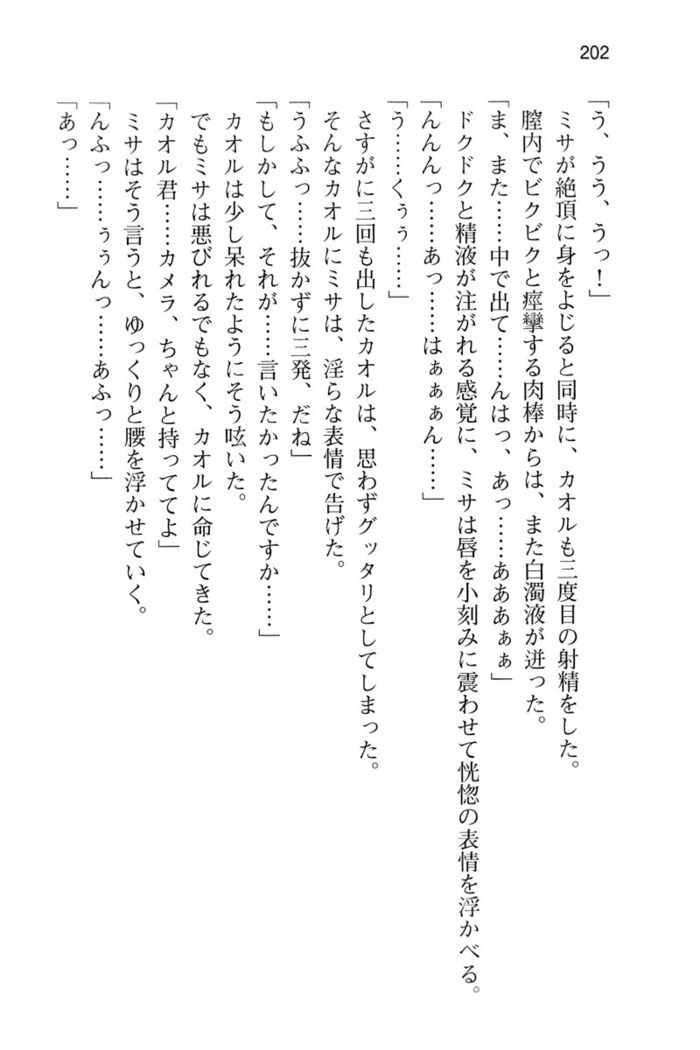 202
「う、うう、うっ！」
ミサが絶頂に身をよじると同時に、カオルも三度目の射精をした。
膣内でビクビクと痙攣する肉棒からは、また白濁液が迸った。
「ま、また……中で出て……んはっ、あっ……あああぁぁ」
ドクドクと精液が注がれる感覚に、ミサは唇を小刻みに震わせて恍惚の表情を浮かべる。
「んんんっ……あっ……はぁぁぁん……」
「う……くぅぅ……」
さすがに三回も出したカオルは、思わずグッタリとしてしまった。
そんなカオルにミサは、淫らな表情で告げた。
「うふふっ……抜かずに三発、だね」
「もしかして、それが……言いたかったんですか……」
カオルは少し呆れたようにそう呟いた。
でもミサは悪びれるでもなく、カオルに命じてきた。
「カオル君……カメラ、ちゃんと持っててよ」
ミサはそう言うと、ゆっくりと腰を浮かせていく。
「んふっ……ぅぅんっ……あふっ……」
「あっ……」